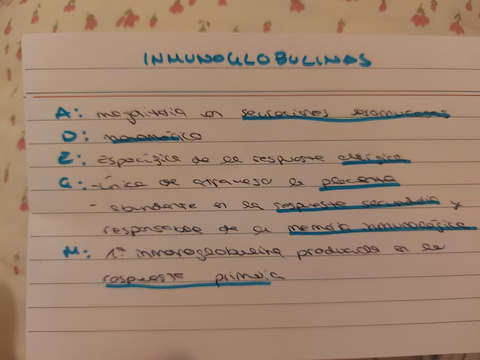 INMUNOGLOBULINAS
A: mayoritaria en secreciones seromucosas
D:
E: específica de la respuesta alérgica
G: - única que atraviesa la placenta
- abundante en la respuesta secundaria y
responsable de la memoria inmunológica
M: 1ª inmunoglobulina producida en la
respuesta primaria